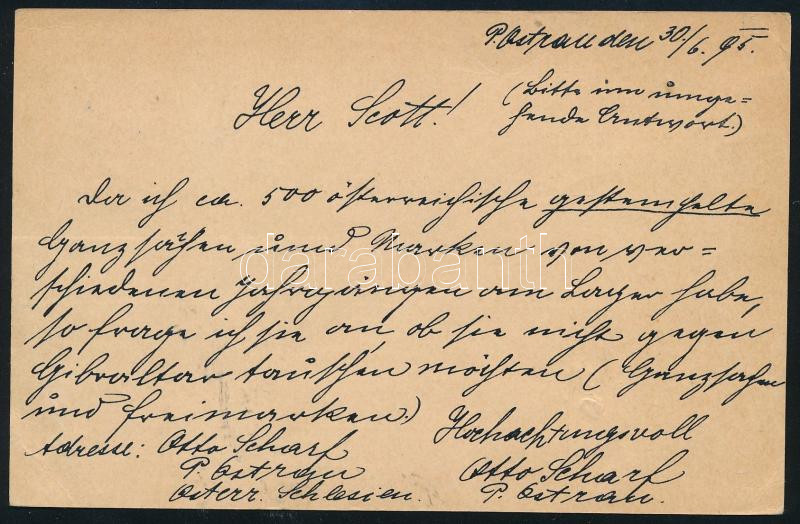 P. Ostrau den 30/6. 95.
Herr Scott!
(Bitte um umge=
hende Antwort.)
Da ich ca. 500 österreichische gestempelte
Ganzsachen und Marken von ver=
schiedenen Jahrgängen am Lager habe,
so frage ich sie an, ob sie nicht gegen
Gibraltar tauschen möchten (Ganzsachen
und Freimarken.)
Hochachtungsvoll
Adresse: Otto Scharf
P. Ostrau
Österr. Schlesien.
Otto Scharf
P. Ostrau.
darabanth